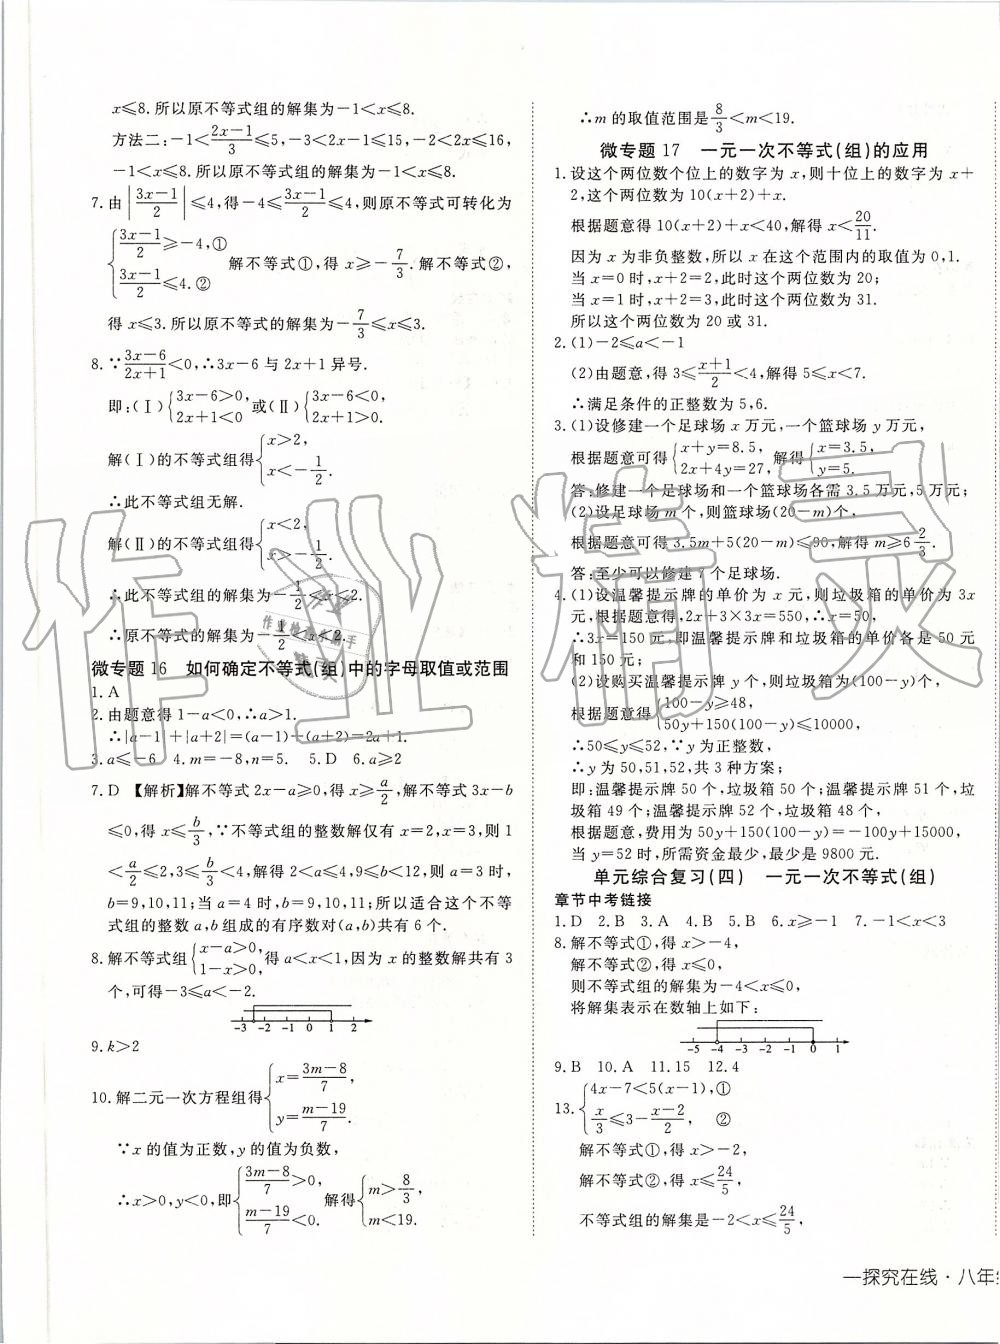 x≤8.所以原不等式组的解集为-1<x≤8.
方法二:-1<\frac{2x-1}{3}≤5,-3<2x-1≤15,-2<2x≤16,
-1<x≤8.所以原不等式组的解集为-1<x≤8.
7.由|\frac{3x-1}{2}|≤4,得-4≤\frac{3x-1}{2}≤4,则原不等式可转化为
{\frac{3x-1}{2}≥-4,①
\frac{3x-1}{2}≤4.② 解不等式①,得x≥-\frac{7}{3}.解不等式②,
得x≤3.所以原不等式的解集为-\frac{7}{3}≤x≤3.
8.∵\frac{3x-6}{2x+1}<0,∴3x-6与2x+1异号.
即:(Ⅰ){3x-6>0, 2x+1<0 或(Ⅱ){3x-6<0, 2x+1>0.
解(Ⅰ)的不等式组得{x>2, x<-\frac{1}{2}.
∴此不等式组无解.
解(Ⅱ)的不等式组得{x<2, x>-\frac{1}{2}.
∴此不等式组的解集为-\frac{1}{2}<x<2.
∴原不等式的解集为-\frac{1}{2}<x<2.
微专题16 如何确定不等式(组)中的字母取值或范围
1.A
2.由题意得1-a<0,∴a>1.
∴|a-1|+|a+2|=(a-1)+(a+2)=2a+1.
3.a≤-6 4.m=-8,n=5. 5.D 6.a≥2
7.D 【解析】解不等式2x-a≥0,得x≥\frac{a}{2},解不等式3x-b
≤0,得x≤\frac{b}{3},∵不等式组的整数解仅有x=2,x=3,则1
<\frac{a}{2}≤2,3≤\frac{b}{3}<4,解得2<a≤4,9≤b<12,则a=3时,
b=9,10,11;当a=4时,b=9,10,11;所以适合这个不等
式组的整数a,b组成的有序数对(a,b)共有6个.
8.解不等式组{x-a>0, 1-x>0, 得a<x<1,因为x的整数解共有3
个,可得-3≤a<-2.
-3 -2 -1 0 1 2
9.k>2
10.解二元一次方程组得{x=\frac{3m-8}{7}, y=\frac{m-19}{7}.
∵x的值为正数,y的值为负数,
∴x>0,y<0,即{\frac{3m-8}{7}>0, \frac{m-19}{7}<0. 解得{m>\frac{8}{3}, m<19.
∴m的取值范围是\frac{8}{3}<m<19.
微专题17 一元一次不等式(组)的应用
1.设这个两位数个位上的数字为x,则十位上的数字为x+
2,这个两位数为10(x+2)+x.
根据题意得10(x+2)+x<40,解得x<\frac{20}{11}.
因为x为非负整数,所以x在这个范围内的取值为0,1.
当x=0时,x+2=2,此时这个两位数为20;
当x=1时,x+2=3,此时这个两位数为31.
所以这个两位数为20或31.
2.(1)-2≤a<-1
(2)由题意,得3≤\frac{x+1}{2}<4,解得5≤x<7.
∴满足条件的正整数为5,6.
3.(1)设修建一个足球场x万元,一个篮球场y万元,
根据题意可得{x+y=8.5, 2x+4y=27, 解得{x=3.5, y=5.
答:修建一个足球场和一个篮球场各需3.5万元,5万元;
(2)设足球场m个,则篮球场(20-m)个,
根据题意可得3.5m+5(20-m)≤90,解得m≥6\frac{2}{3}.
答:至少可以修建7个足球场.
4.(1)设温馨提示牌的单价为x元,则垃圾箱的单价为3x
元,根据题意得,2x+3×3x=550,∴x=50,
∴3x=150元;即温馨提示牌和垃圾箱的单价各是50元
和150元.
(2)设购买温馨提示牌y个,则垃圾箱为(100-y)个,
根据题意得{100-y≥48, 50y+150(100-y)≤10000,
∴50≤y≤52,∵y为正整数,
∴y为50,51,52,共3种方案;
即:温馨提示牌50个,垃圾箱50个;温馨提示牌51个,垃
圾箱49个;温馨提示牌52个,垃圾箱48个,
根据题意,费用为50y+150(100-y)=-100y+15000,
当y=52时,所需资金最少,最少是9800元.
单元综合复习(四) 一元一次不等式(组)
章节中考链接
1.D 2.B 3.A 4.B 5.B 6.x≥-1 7.-1<x<3
8.解不等式①,得x>-4,
解不等式②,得x≤0,
则不等式组的解集为-4<x≤0,
将解集表示在数轴上如下:
-5 -4 -3 -2 -1 0 1
9.B 10.A 11.15 12.4
13.{4x-7<5(x-1),①
\frac{x}{3}≤3-\frac{x-2}{2}, ②
解不等式①,得x>-2,
解不等式②,得x≤\frac{24}{5},
不等式组的解集是-2<x≤\frac{24}{5},
一探究在线·八年
作业精灵